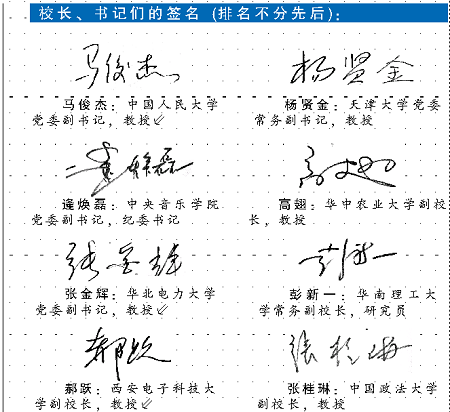 校长、书记们的签名 (排名不分先后):
马俊杰
杨贤金
马俊杰：中国人民大学
党委副书记，教授
杨贤金：天津大学党委
常务副书记，教授
逄焕磊
高翅
逄焕磊：中央音乐学院
党委副书记，纪委书记
高翅：华中农业大学副校
长，教授
张金辉
彭新一
张金辉：华北电力大学
党委副书记，教授
彭新一：华南理工大
学常务副校长，研究员
郝跃
张桂琳
郝跃：西安电子科技大
学副校长，教授
张桂琳：中国政法大学
副校长，教授